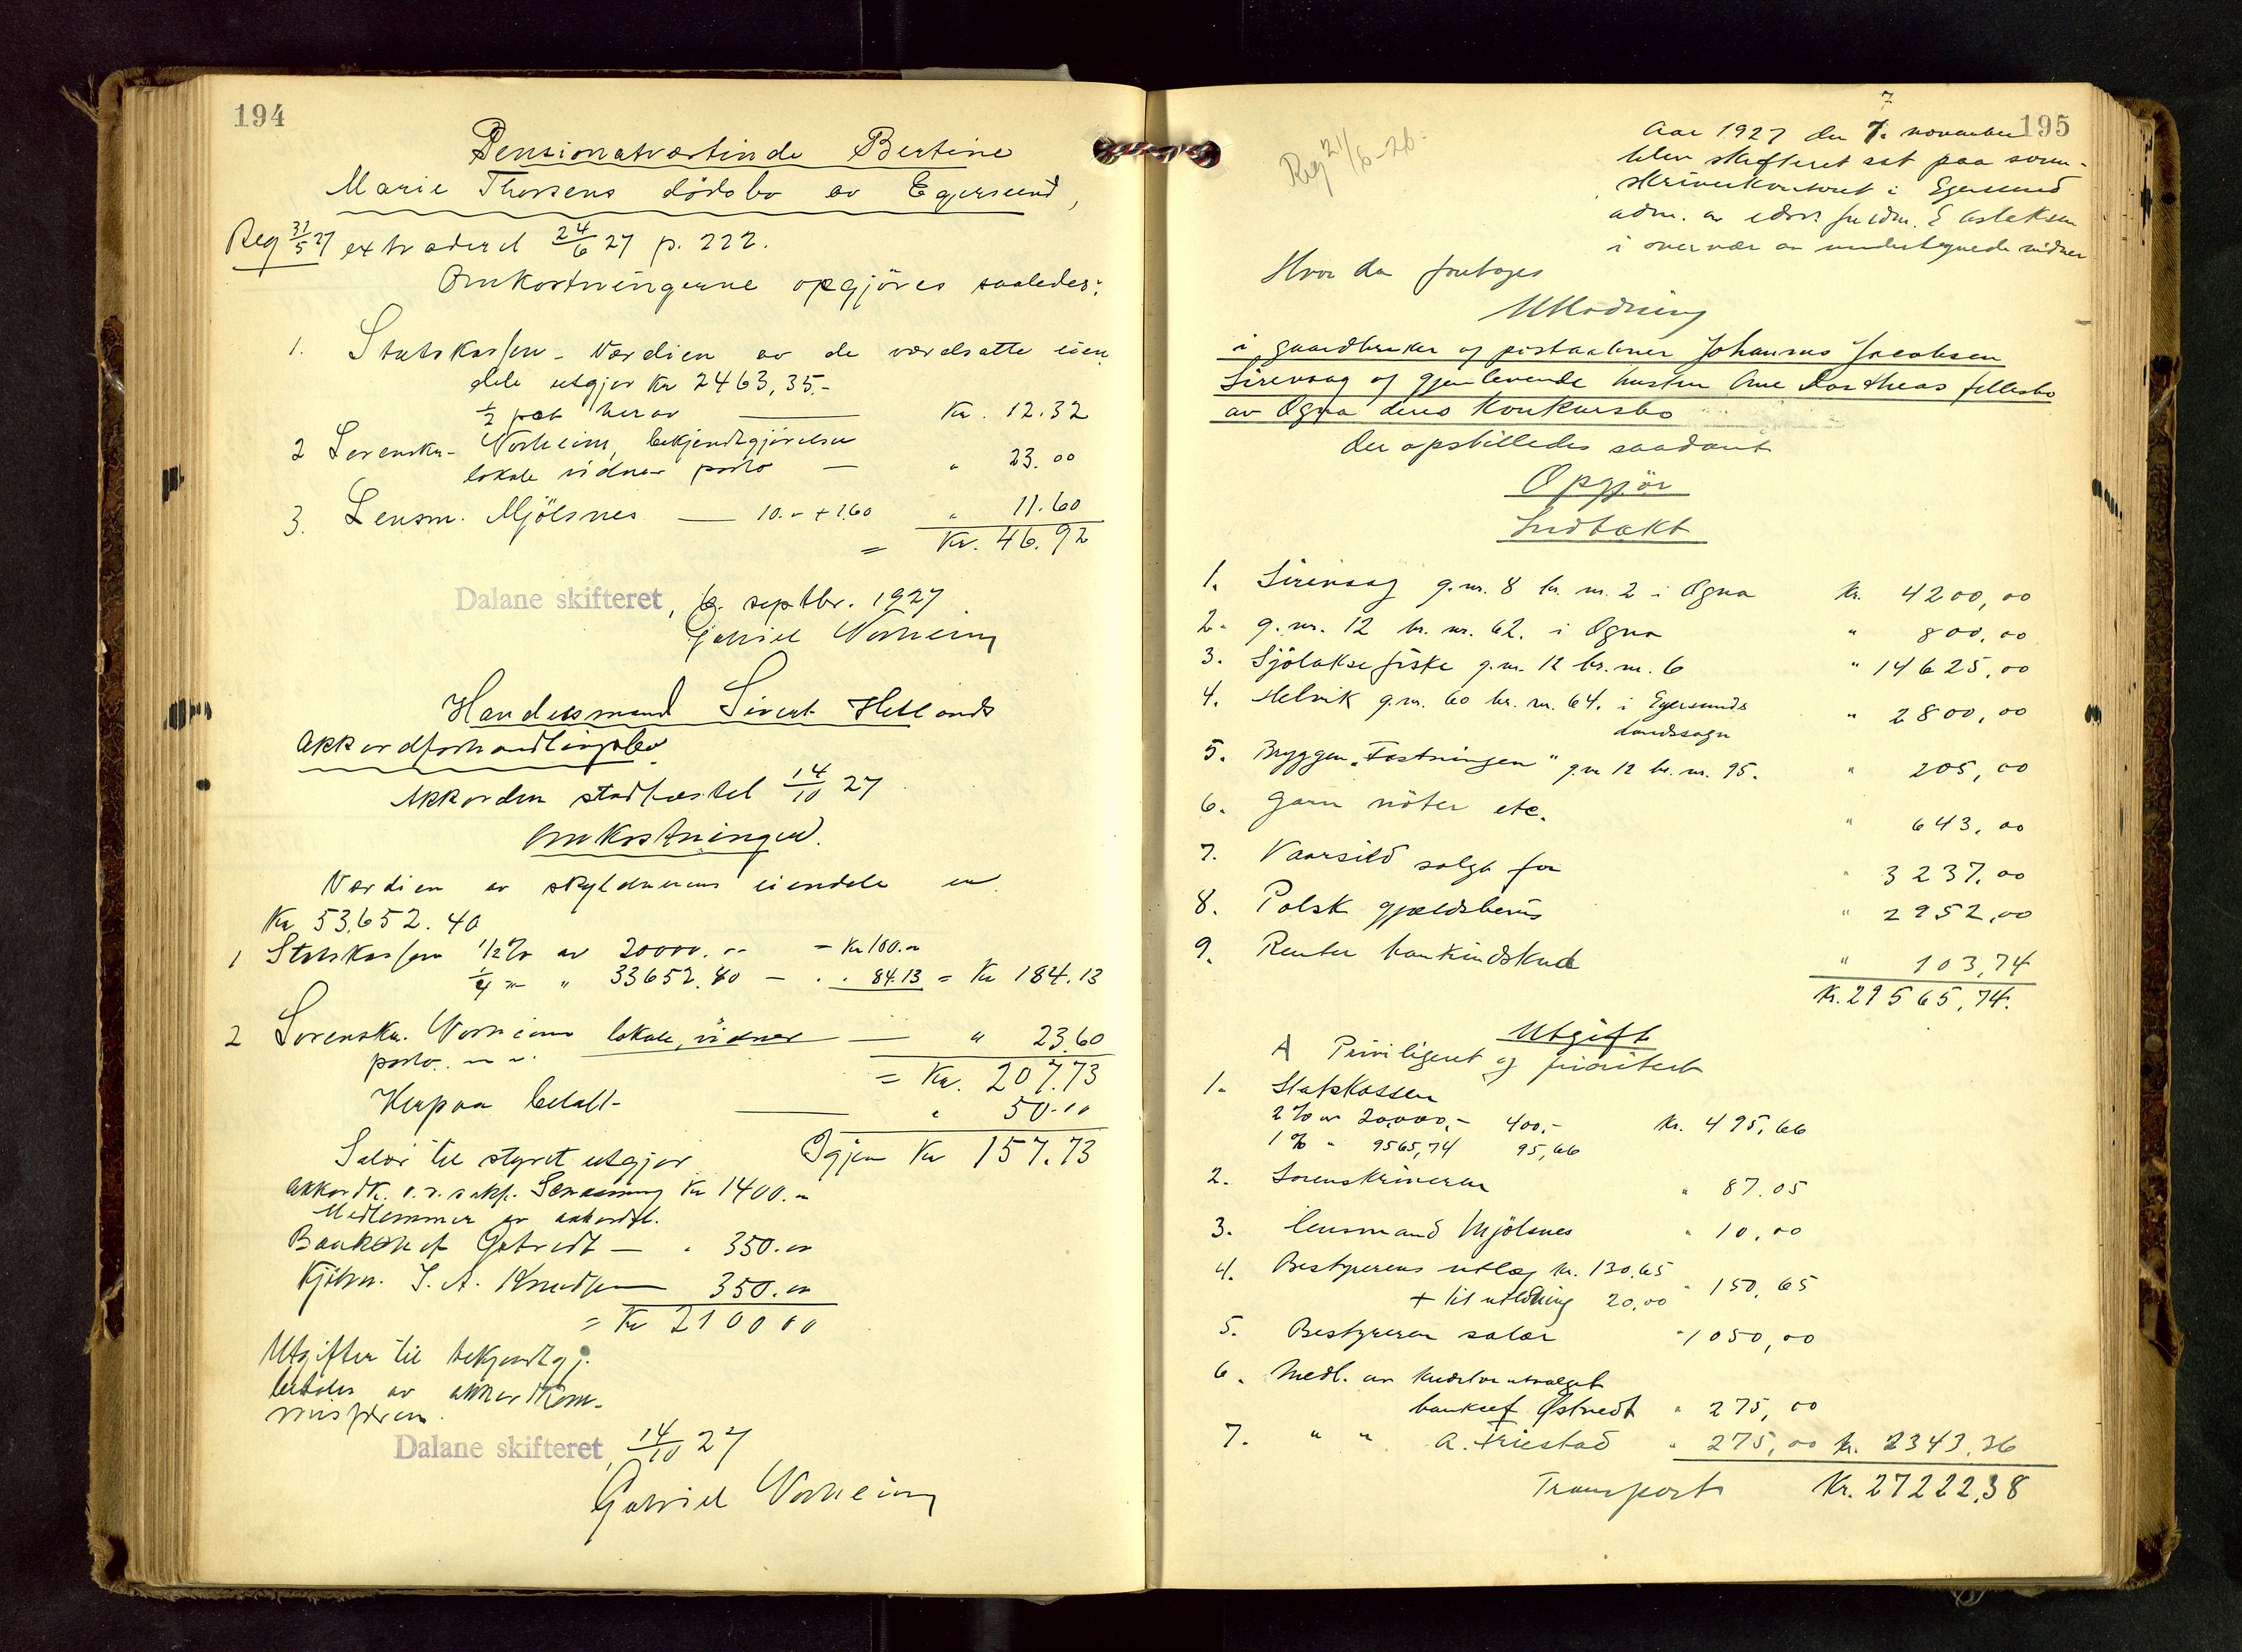 194
Pensionatværtinde Bertine
Marie Thorsens dödsbo av Egersund,
Reg 31/5 27 extraderet 24/6 27 p. 222.
Omkostningerne opgjöres saaledes:
1. Statskassen - Værdien av de værdsatte eien
dele utgjør Kr 2463,35.-
½ pct herav — Kr. 12.32
2 Sorenskr. Norheim, bekjendtgjörelse
lokale vidner porto — " 23.00
3. Lensm. Mjölsnes — 10.- + 1.60 " 11.60
= Kr. 46.92
Dalane skifteret, 6. septbr. 1927
Gabriel Norheim
Handelsmand Sivert Hetlands
Akkordforhandlingsbo
Akkorden stadfæstet 14/10 27
Omkostninger.
Værdien av skyldnerens eiendele er
Kr 53.652.40
1 Statskassen 1/2 % av 20000.- = Kr 100.-
1/4 - " 33652.40 - 84.13 = Kr 184.13
2 Sorenskr. Norheim lokale, vidner — " 23.60
porto
= Kr. 207.73
Herpaa betalt — " 50.00
Igjen Kr 157.73
Salær til styret utgjør
akkordk. o.r.sakf. Kr 1400.-
Medlemmer av
Bankchef Östvedt — " 350.-
Kjöbm. J. A. Knudsen — 350.-
= Kr 2100.00
Utgifter til bekjendtgj.
betales av akkordkom-
missæren.
Dalane skifteret, 14/10 27
Gabriel Norheim
195
Reg 21/6-26.
7
Aar 1927 den 7. november
blev skifteret sat paa soren-
skriverkontoret i Egersund
adm. av edsv. fuldm. E Aslaksen
i overvær av undertegnede vidner
Hvor da foretoges
Utlodning
i gaardbruker og postaapner Johannes Jacobsen
Sirevaag og gjenlevende hustru Ane Dortheas fellesbo
av Ogna deres Konkursbo
Der opstilledes saadant
Opgjör
Indtækt
1. Sirevaag g.nr. 8 br. nr. 2 i Ogna Kr. 4200,00
2. g. nr. 12 br. nr. 62. i Ogna " 800,00
3. Sjölaksefiske g.nr. 12 br.nr. 6 " 14625,00
4. Helvik g.nr. 60 br. nr. 64. i Egersunds
landssogn " 2800,00
5. Bryggen "Fæstningen" g.nr 12 br. nr. 95. " 205,00
6. Garn nöter etc. " 643,00
7. Vaarsild solgt for " 3237,00
8. Polsk gjældsbevis " 2952,00
9. Renter bankindskud " 103,74
Kr. 29565,74.
Utgift
A Priviligeret og prioritert
1. Statskassen
2 % av 20,000,- 400,- Kr. 495,66
1 % " 9565,74 95,66
2. Sorenskriveren " 87.05
3. Lensmand Mjölsnes " 10,00
4. Bestyrerens utlæg kr. 130,65
+ til utlodning 20,00 " 150,65
5. Bestyreren salær " 1050,00
6. Medl. av kreditorutvalget
banksef Östvedt " 275,00
7. " " A. Friestad " 275,00 Kr. 2343,36
Transport Kr. 27222,38